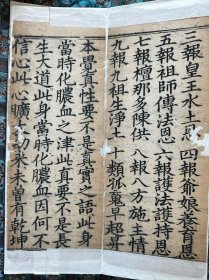 三報皇王水土恩　四報爺娘養育恩
五報祖師傳法恩　六報護法護持恩
七報檀那多陳供　八報八方施主情
九報九祖生淨土　十類孤魂早超昇
本覺真性要不是真實之語此身
當時化膿血之津此真要不是長
生大道此身當時化膿血因何不
信心此心曠劫來未曾有乾坤